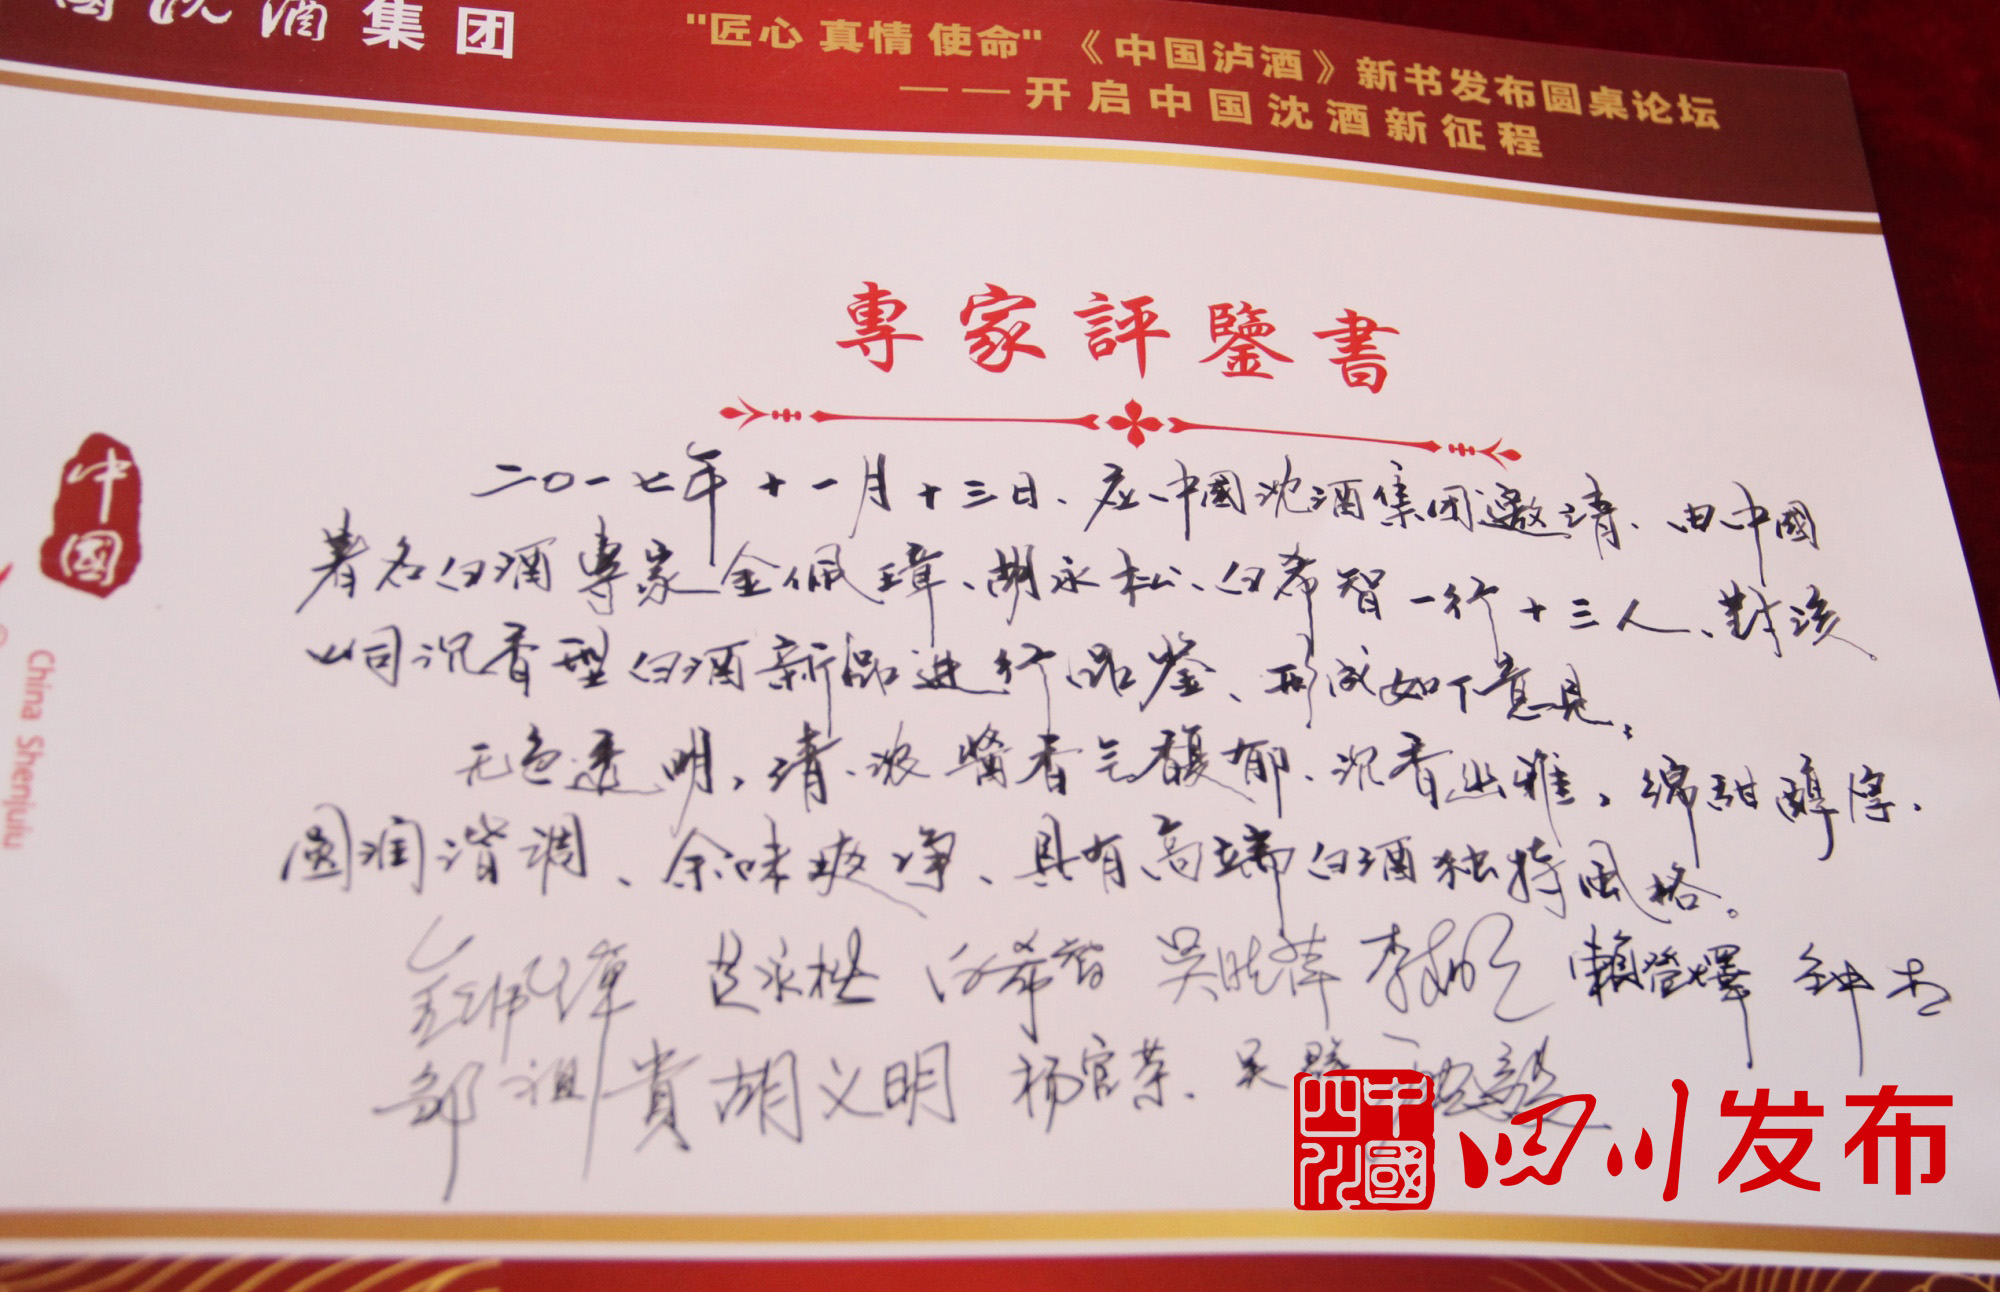 國沈酒集团
"匠心 真情 使命"《中国泸酒》新书发布圆桌论坛
——开启中国沈酒新征程
專家評鑒書
中國
China Shenjiu
二〇一七年十一月十三日、应中國沈酒集团邀请、由中國
著名白酒專家金佩璋、胡永松、白希智一行十三人、對该
公司沉香型白酒新品进行品鉴、形成如下意见:
无色透明,清、浓酱香气馥郁、沉香幽雅,绵甜醇厚、
圆润谐调、余味爽净、具有高端白酒独特风格。
金佩璋 胡永松 白希智 吴晓萍 李 赖登燡 钟杰
邹祖貴 胡义明 杨官荣
中國四川
四川发布